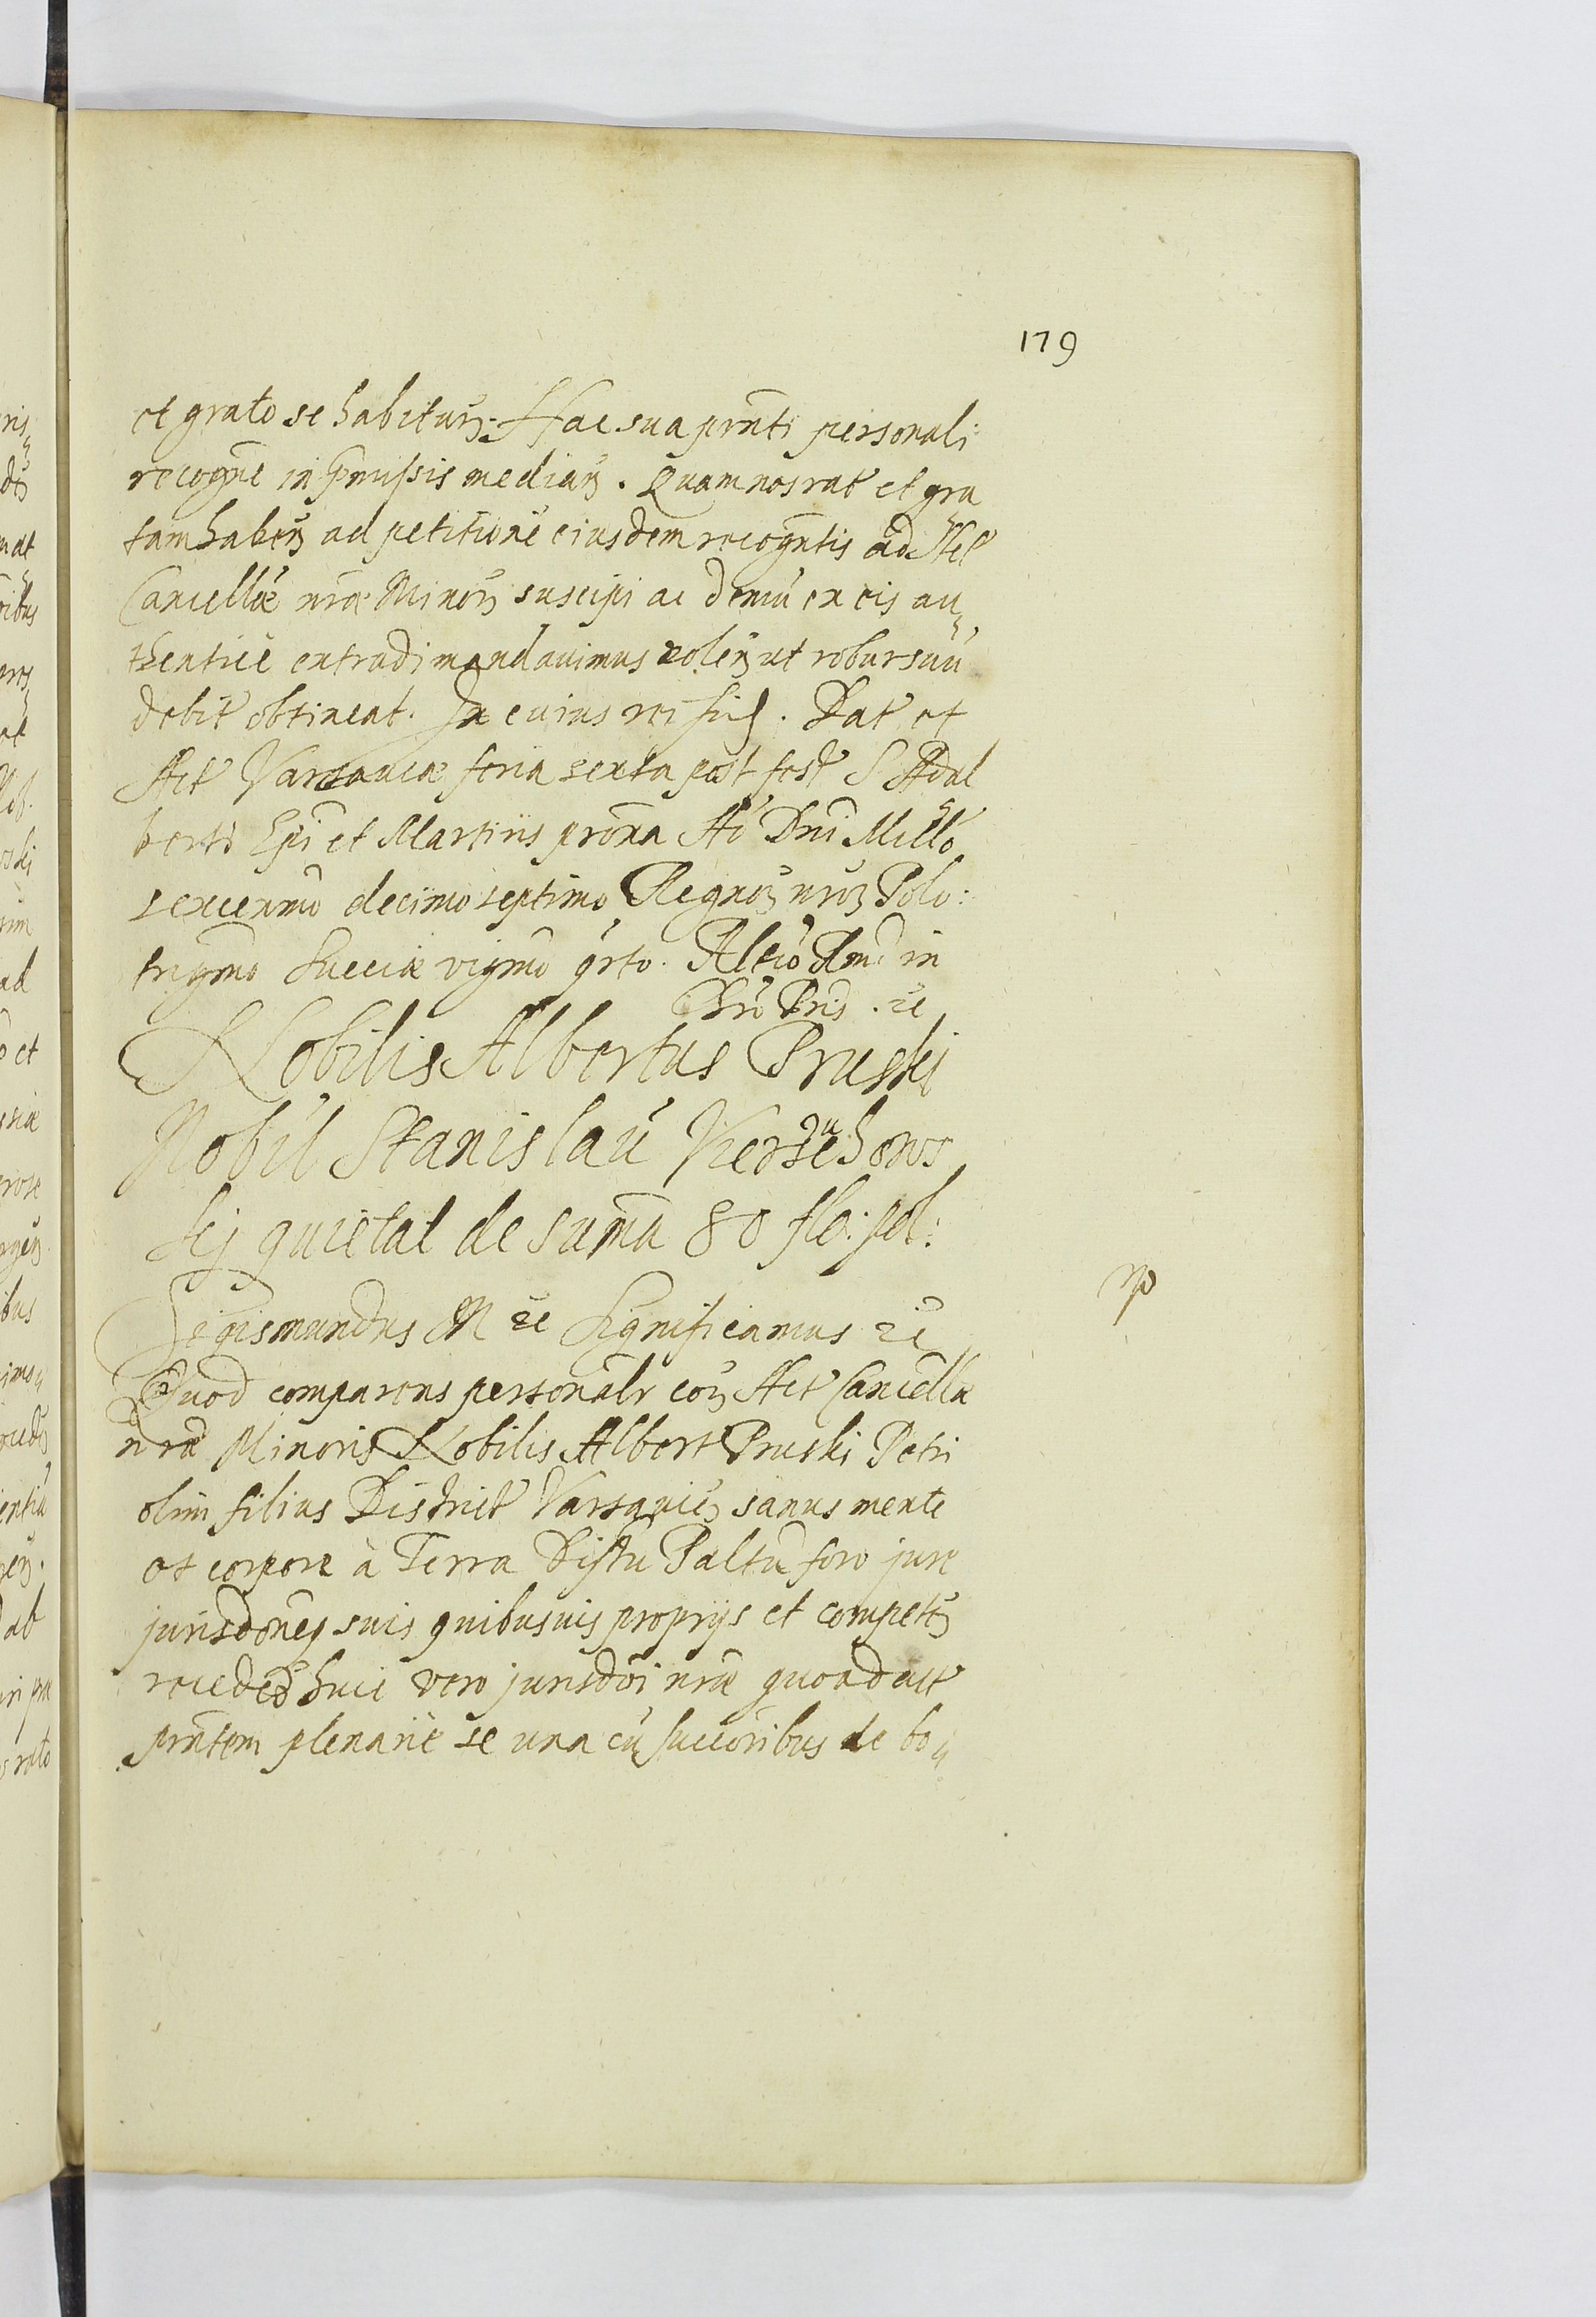 179
et grato se habitur. Hac sua pr̃nti personali
recogñe in p̃missis median. Quam nos rat et gra
tam haben ad petitionẽ eiusdem recogñtis ad Act
Cancellæ nr̃æ Minor suscipi ac demũ ex eis au
thenticè extradi mandauimus volen ut robur suũ
debit obtineat. In cuius rei fid. Dat et
Act Varsauiæ feria sexta post fest S Adal
berti Ep̃i et Martiris pro Aõ Dñi Millõ
sexcenmõ decimo septimo Regnor nror Polo:
trigmõ Sueciæ vigmõ qrto.
in
Chrõ Pris. &c
Nobilis Albertus Pruski
Nobil Stanislaũ
quietat de sum̃a 80 flo: pol:
Sigismundus &c Significamus &c
Quod comparens personalr cor Act Cancellæ
nr̃æ Minoris Nobilis Albert Pruski Petri
olim filius District Varsauien sanus mente
et corpore à Terra foro jure
jurisdõneq suis quibusuis proprijs et competen
receden huic vero jurisdõi nr̃æ quoad act
pr̃ntem plenariè se una cũ succoribus de bo